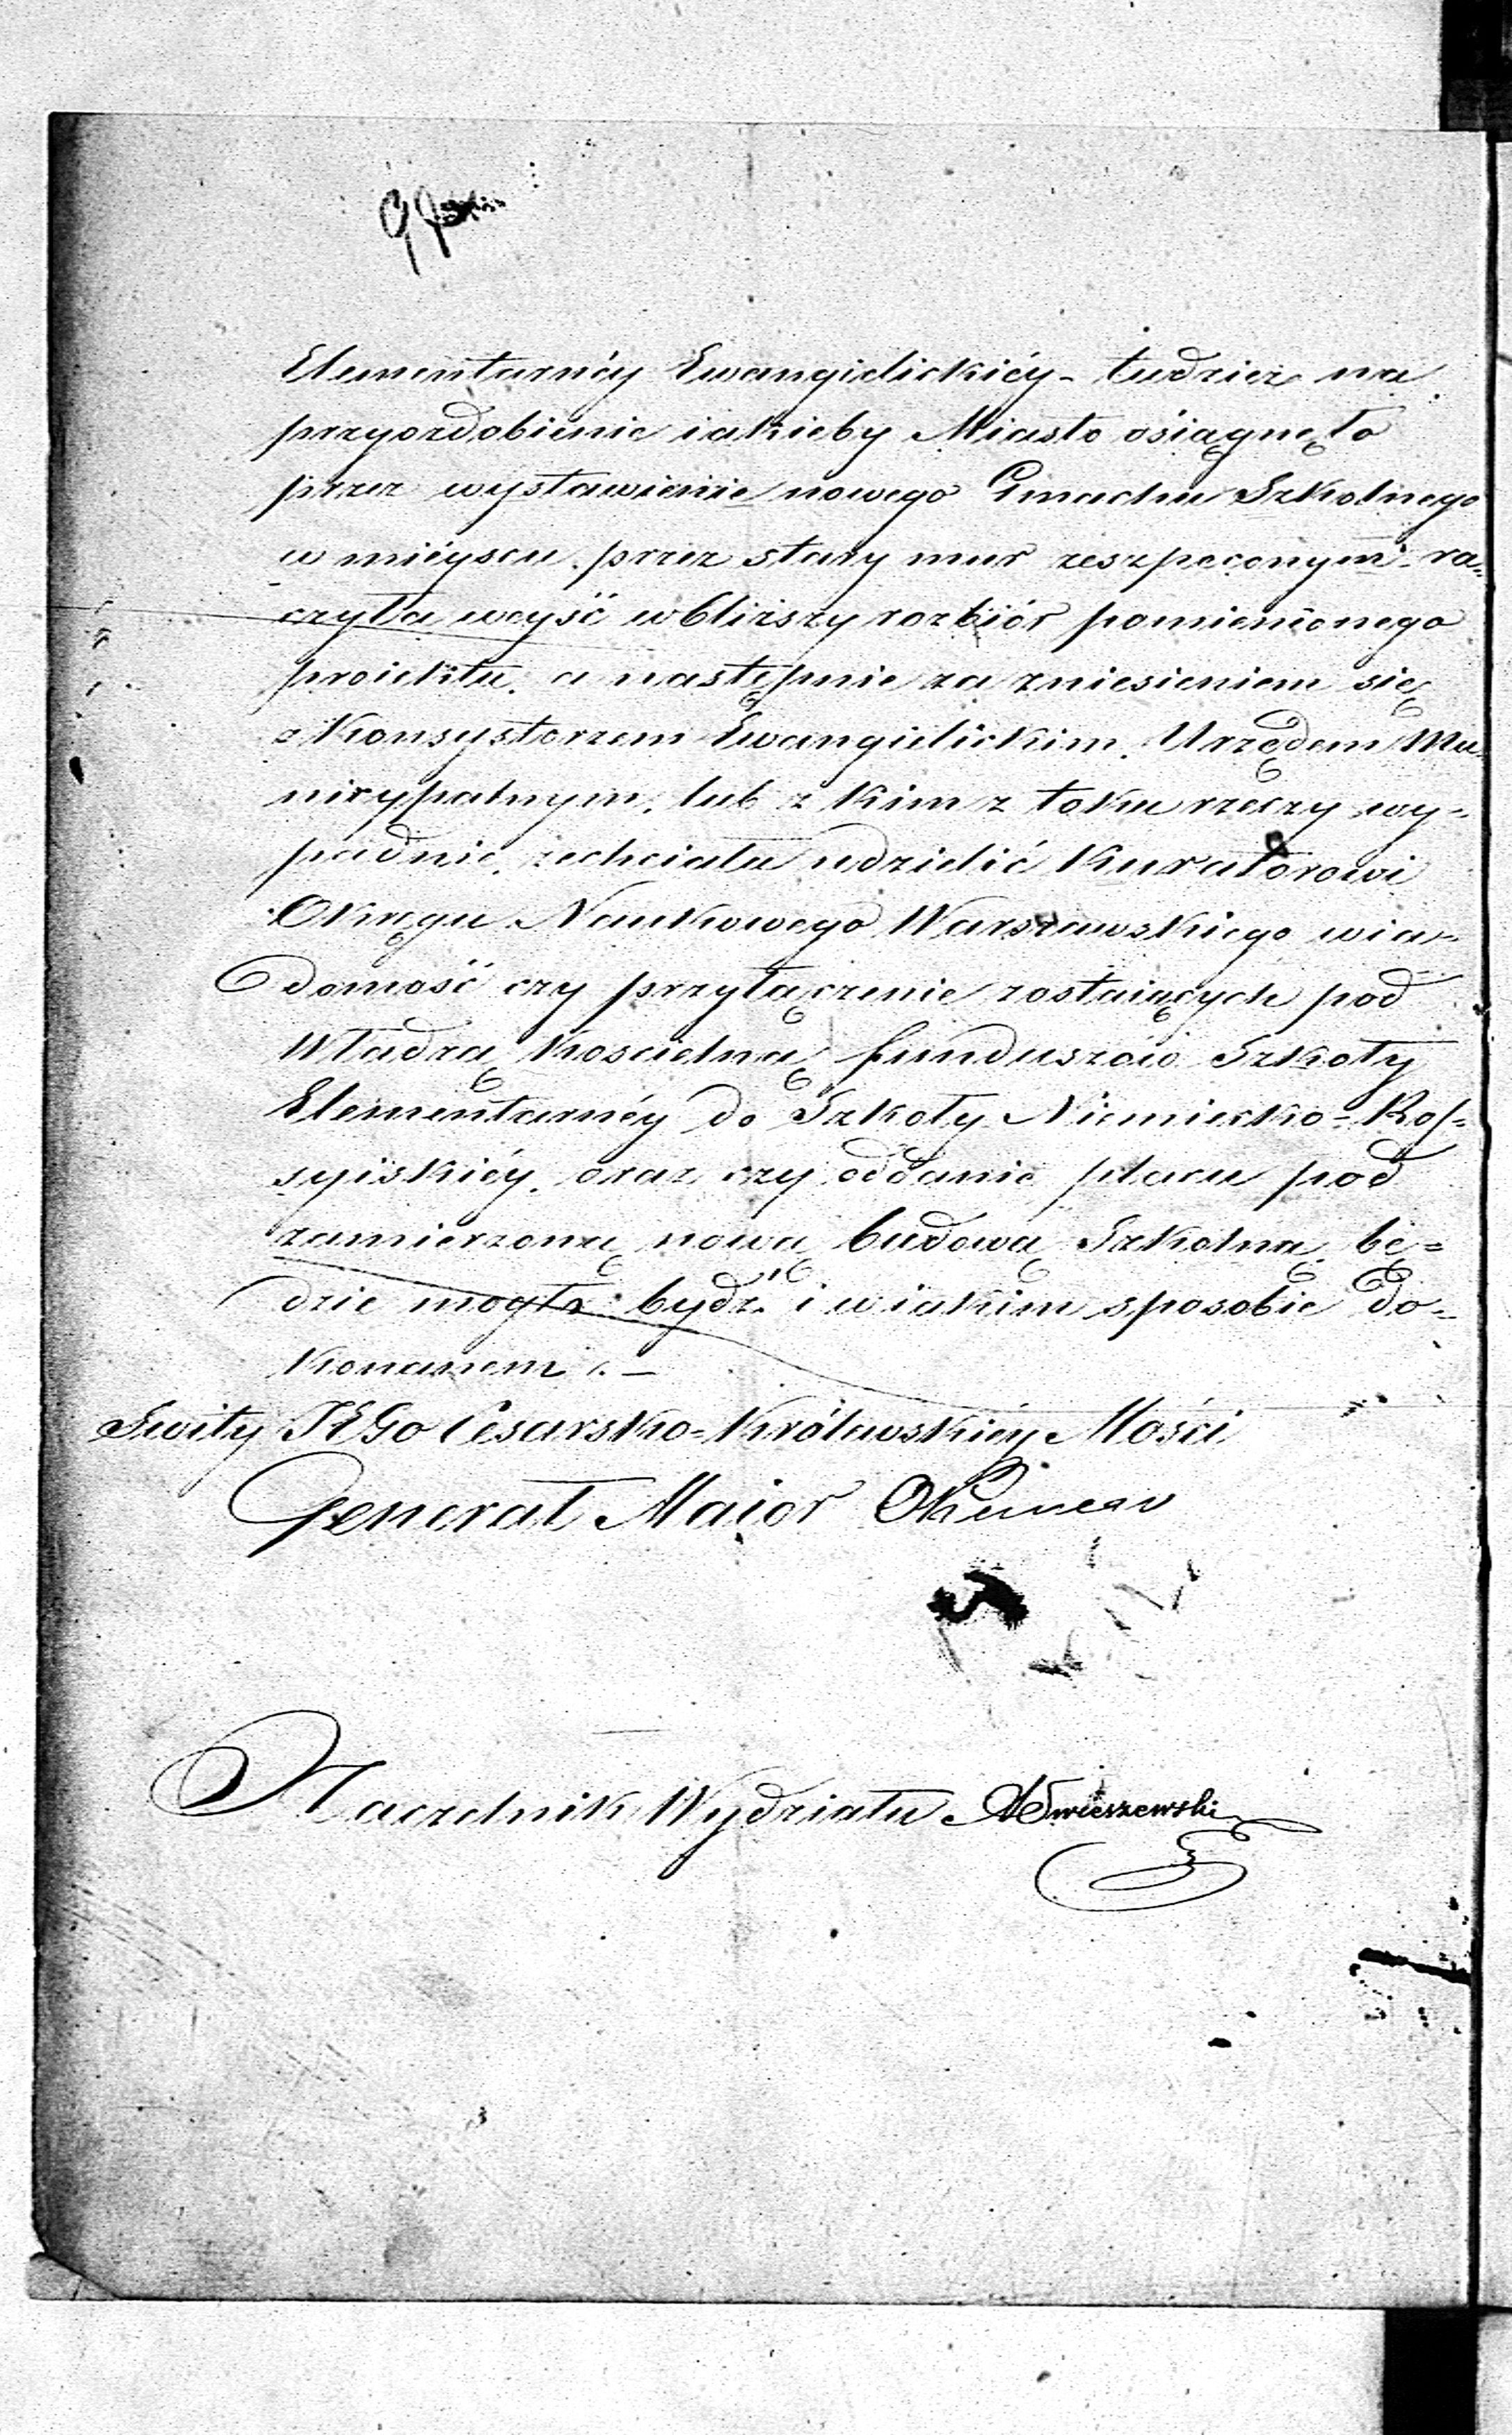 Elementarnéy Ewangielickiéy - tudzież na
przyozdobienie iakieby Miasto osiągnęło
przez wystawienie nowego Gmachu Szkolnego
w mieyscu przez stary mur zeszpeconym - ra-
czyła weyść w bliższy rozbiór pomienionego
proiektu, a następnie za zniesieniem się
z Konsystorzem Ewangielickim, Urzędem Mu-
nicypalnym, lub z kim z toku rzeczy wy-
padnie, zechciała udzielić Kuratorowi
Okręgu Naukowego Warszawskiego wia-
domość czy przyłączenie zostaiących pod
Władzą Kościelną funduszów Szkoły
Elementarnéy do Szkoły Niemiecko-Ros-
syiskiéy, oraz czy oddanie placu pod
zamierzoną nową budowę Szkolną bę-
dzie mogło bydź i w iakim sposobie do-
konanem. -
Swity JEGo Cesarsko-Królewskiéy Mości
Generał Maior Okunew
Naczelnik Wydziału